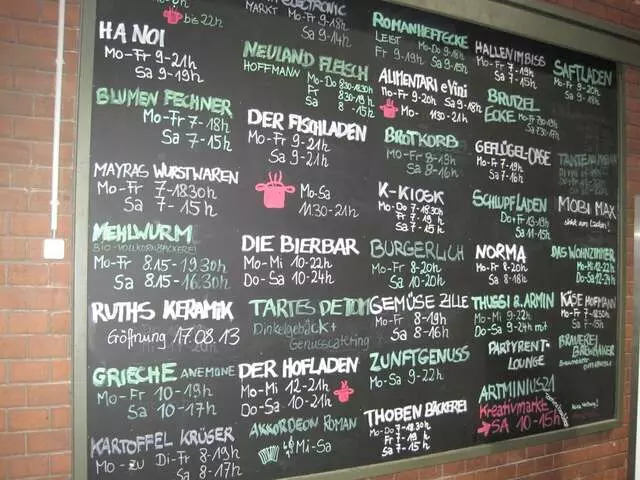 bis 22h
HANOI
Mo-Fr 9-21h
Sa 9-19h
BLUMEN FECHNER
Mo-Fr 7-18h
Sa 7-15h
MAYRAS WURSTWAREN
Mo-Fr 7-18.30h
Sa 7-15h
MEHLWURM
BIO-VOLLKORNBÄCKEREI
Mo-Fr 8.15-19.30h
Sa 8.15-16.30h
RUTHS KERAMIK
Göffnung 17.08.13
GRIECHE ANEMONE
Mo-Fr 10-19h
Sa 10-17h
KARTOFFEL KRÜGER
Mo-zu Di-Fr 8-19h
Sa 8-17h
MARKT Mo-Fr 9-18h
Sa 9-14h
NEULAND FLEISCH
HOFFMANN Mo-Do 8.30-18.30h
Fr 8.30-19h
Sa 8-15h
DER FISCHLADEN
Mo-Fr 9-21h
Sa 9-21h
Mo-Sa
11.30-21h
DIE BIERBAR
Mo-Mi 10-22h
Do-Sa 10-24h
TARTES DE TOM
Dinkelgebäck+
Genusscatering
DER HOFLADEN
Mo-Mi 12-21h
Do-Sa 10-21h
AKKORDEON ROMAN
Mi-Sa
ROMANHEFTECKE
LEIST Mo-Do 9-18h
Fr 9-19h Sa 9-15h
ALIMENTARI e Vini
Mo-Fr 9-20h Sa 9-18h
Mo- 11.30-21h
BROTKORB
Mo-Fr 8-19h
Sa 8-16h
K-KIOSK
Mo-Do 7-18.30h
Fr 7-19h
Sa 7-15h
BÜRGERLICH
Mo-Fr 8-20h
Sa 10-20h
GEMÜSE ZILLE
Mo-Fr 8-19h
Sa 8-16h
ZUNFTGENUSS
Mo-Sa 9-22h
THOBEN BÄCKEREI
Mo-Do 7-18.30h
Fr 7-19h
Sa 7-15h
HALLENIMBISS
Mo-Fr 7-19h
Sa 7-15h
BRUTZEL
ECKE
GEFLÜGEL-OASE
Mo-Fr 7-19h
Sa 7-16h
SCHLUPFLADEN
Do+Fr 13-19h
Sa 11-15h
NORMA
Mo-Fr 8-20h
Sa 8-18h
THUSSI & ARMIN
Mo-Mi 9-22h
Do-Sa 9-24h
PARTYRENT-
LOUNGE
ARTMINIUS21
Kreativmarkt
SA 10-15h
SAFTLADEN
Mo-Fr 9-19h
Sa 9-18h
MOBI MAX
DAS WOHNZIMMER
Mo-Mi 12-22h
Do-Sa 12-24h
KÄSE HOFMANN
Mo-Fr 7-18.30h
Sa 7-15h
BRAUEREI